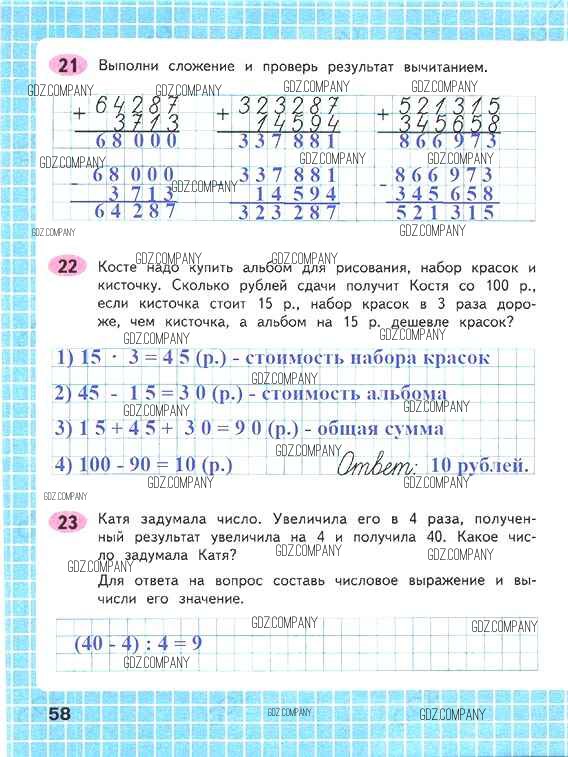 21 Выполни сложение и проверь результат вычитанием.
GDZ.COMPANY GDZ.COMPANY GDZ.COMPANY GDZ.COMPANY
+ 64287 + 323287 + 521315
3713 14594 345658
68000 337881 866973
GDZ.COMPANY GDZ.COMPANY GDZ.COMPANY
- 68000 337881 - 866973
3713 14594 345658
GDZ.COMPANY
64287 323287 521315
GDZ.COMPANY GDZ.COMPANY
GDZ.COMPANY GDZ.COMPANY
22 Косте надо купить альбом для рисования, набор красок и
кисточку. Сколько рублей сдачи получит Костя со 100 р.,
если кисточка стоит 15 р., набор красок в 3 раза доро-
же, чем кисточка, а альбом на 15 р. дешевле красок?
GDZ.COMPANY GDZ.COMPANY
1) 15 · 3 = 45 (р.) - стоимость набора красок
GDZ.COMPANY
2) 45 - 15 = 30 (р.) - стоимость альбома
GDZ.COMPANY GDZ.COMPANY
3) 15 + 45 + 30 = 90 (р.) - общая сумма
GDZ.COMPANY
4) 100 - 90 = 10 (р.) Ответ: 10 рублей.
GDZ.COMPANY GDZ.COMPANY
GDZ.COMPANY
23 Катя задумала число. Увеличила его в 4 раза, получен-
ный результат увеличила на 4 и получила 40. Какое чис-
ло задумала Катя?
GDZ.COMPANY GDZ.COMPANY GDZ.COMPANY
Для ответа на вопрос составь числовое выражение и вы-
числи его значение.
GDZ.COMPANY GDZ.COMPANY
(40 - 4) : 4 = 9
GDZ.COMPANY
58 GDZ.COMPANY GDZ.COMPANY